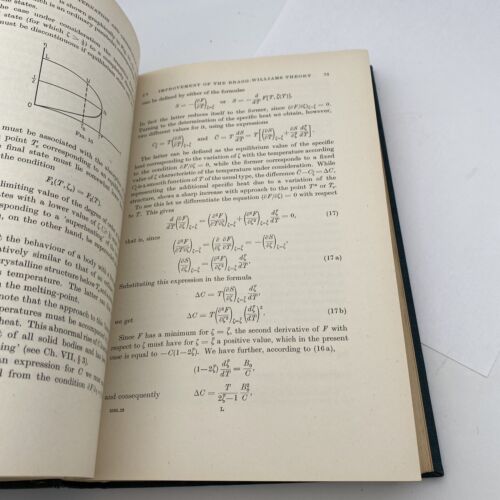 is shown graphically
which is an ordinary
case under considerations the
state (for which ζ >
must be discontinuous if
Fig. 16
must be associated with the
point T, corresponding
final state must be somewhat
the condition
F₂(T, ζ₀) = F₁(T).
limiting value of the degree of
ates with a lower value of ζ
sponding to a 'superheating' of
), on the other hand, be
the behaviour of a body with
atively similar to that of a
crystalline structure below T₀
temperature. The latter
n the melting-point.
note that the approach to the
peratures must be accompanied
heat. This abnormal rise of
t of all solid bodies and is
ing' (see Ch. VII, § 3).
an expression for C we must
d from the condition
IMPROVEMENT OF THE BRAGG-WILLIAMS THEORY
can be defined by either of the formulae
S = −(∂F/∂T) or S = −d/dT F[T, ζ̄(T)].
In fact the latter reduces itself to the former, since (∂F/∂ζ)ζ=ζ̄ = 0.
Turning to the determination of the specific heat we obtain, however,
two different values for it, using the expressions
Cζ̄ = T(∂S/∂T)ζ=ζ̄ and C = T dS/dT = T[(∂S/∂T)ζ=ζ̄ + ∂S/∂ζ̄ dζ̄/dT].
The latter can be defined as the equilibrium value of the specific
heat corresponding to the variation of ζ̄ with the temperature according
to the condition ∂F/∂ζ = 0, while the former corresponds to a fixed
value of ζ characteristic of the temperature under consideration. While
Cζ̄ is a smooth function of T of the usual type, the difference C−Cζ̄ = ΔC,
representing the additional specific heat due to a variation of the
structure, shows a sharp increase with approach to the point
To use this let us differentiate the equation (∂F/∂ζ)ζ=ζ̄ = 0 with respect
to T. This gives
d/dT(∂F/∂ζ)ζ=ζ̄ = (∂²F/∂T∂ζ)ζ=ζ̄ + (∂²F/∂ζ²)ζ=ζ̄ dζ̄/dT = 0, (17)
that is, since
(∂²F/∂T∂ζ)ζ=ζ̄ = (∂/∂ζ ∂F/∂T)ζ=ζ̄ = −(∂S/∂ζ)ζ=ζ̄,
(∂S/∂ζ)ζ=ζ̄ = (∂²F/∂ζ²)ζ=ζ̄ dζ̄/dT. (17 a)
Substituting this expression in the formula
ΔC = T(∂S/∂ζ)ζ=ζ̄ dζ̄/dT,
we get ΔC = T(∂²F/∂ζ²)ζ=ζ̄ (dζ̄/dT)². (17 b)
Since F has a minimum for ζ = ζ̄, the second derivative of F with
respect to ζ must have for ζ = ζ̄ a positive value, which in the present
case is equal to −C(1−2ζ̄). We have further, according to (16 a),
(1−2ζ̄) dζ̄/dT = B₀/C,
and consequently ΔC = T/(2ζ̄−1) B₀²/C,
L